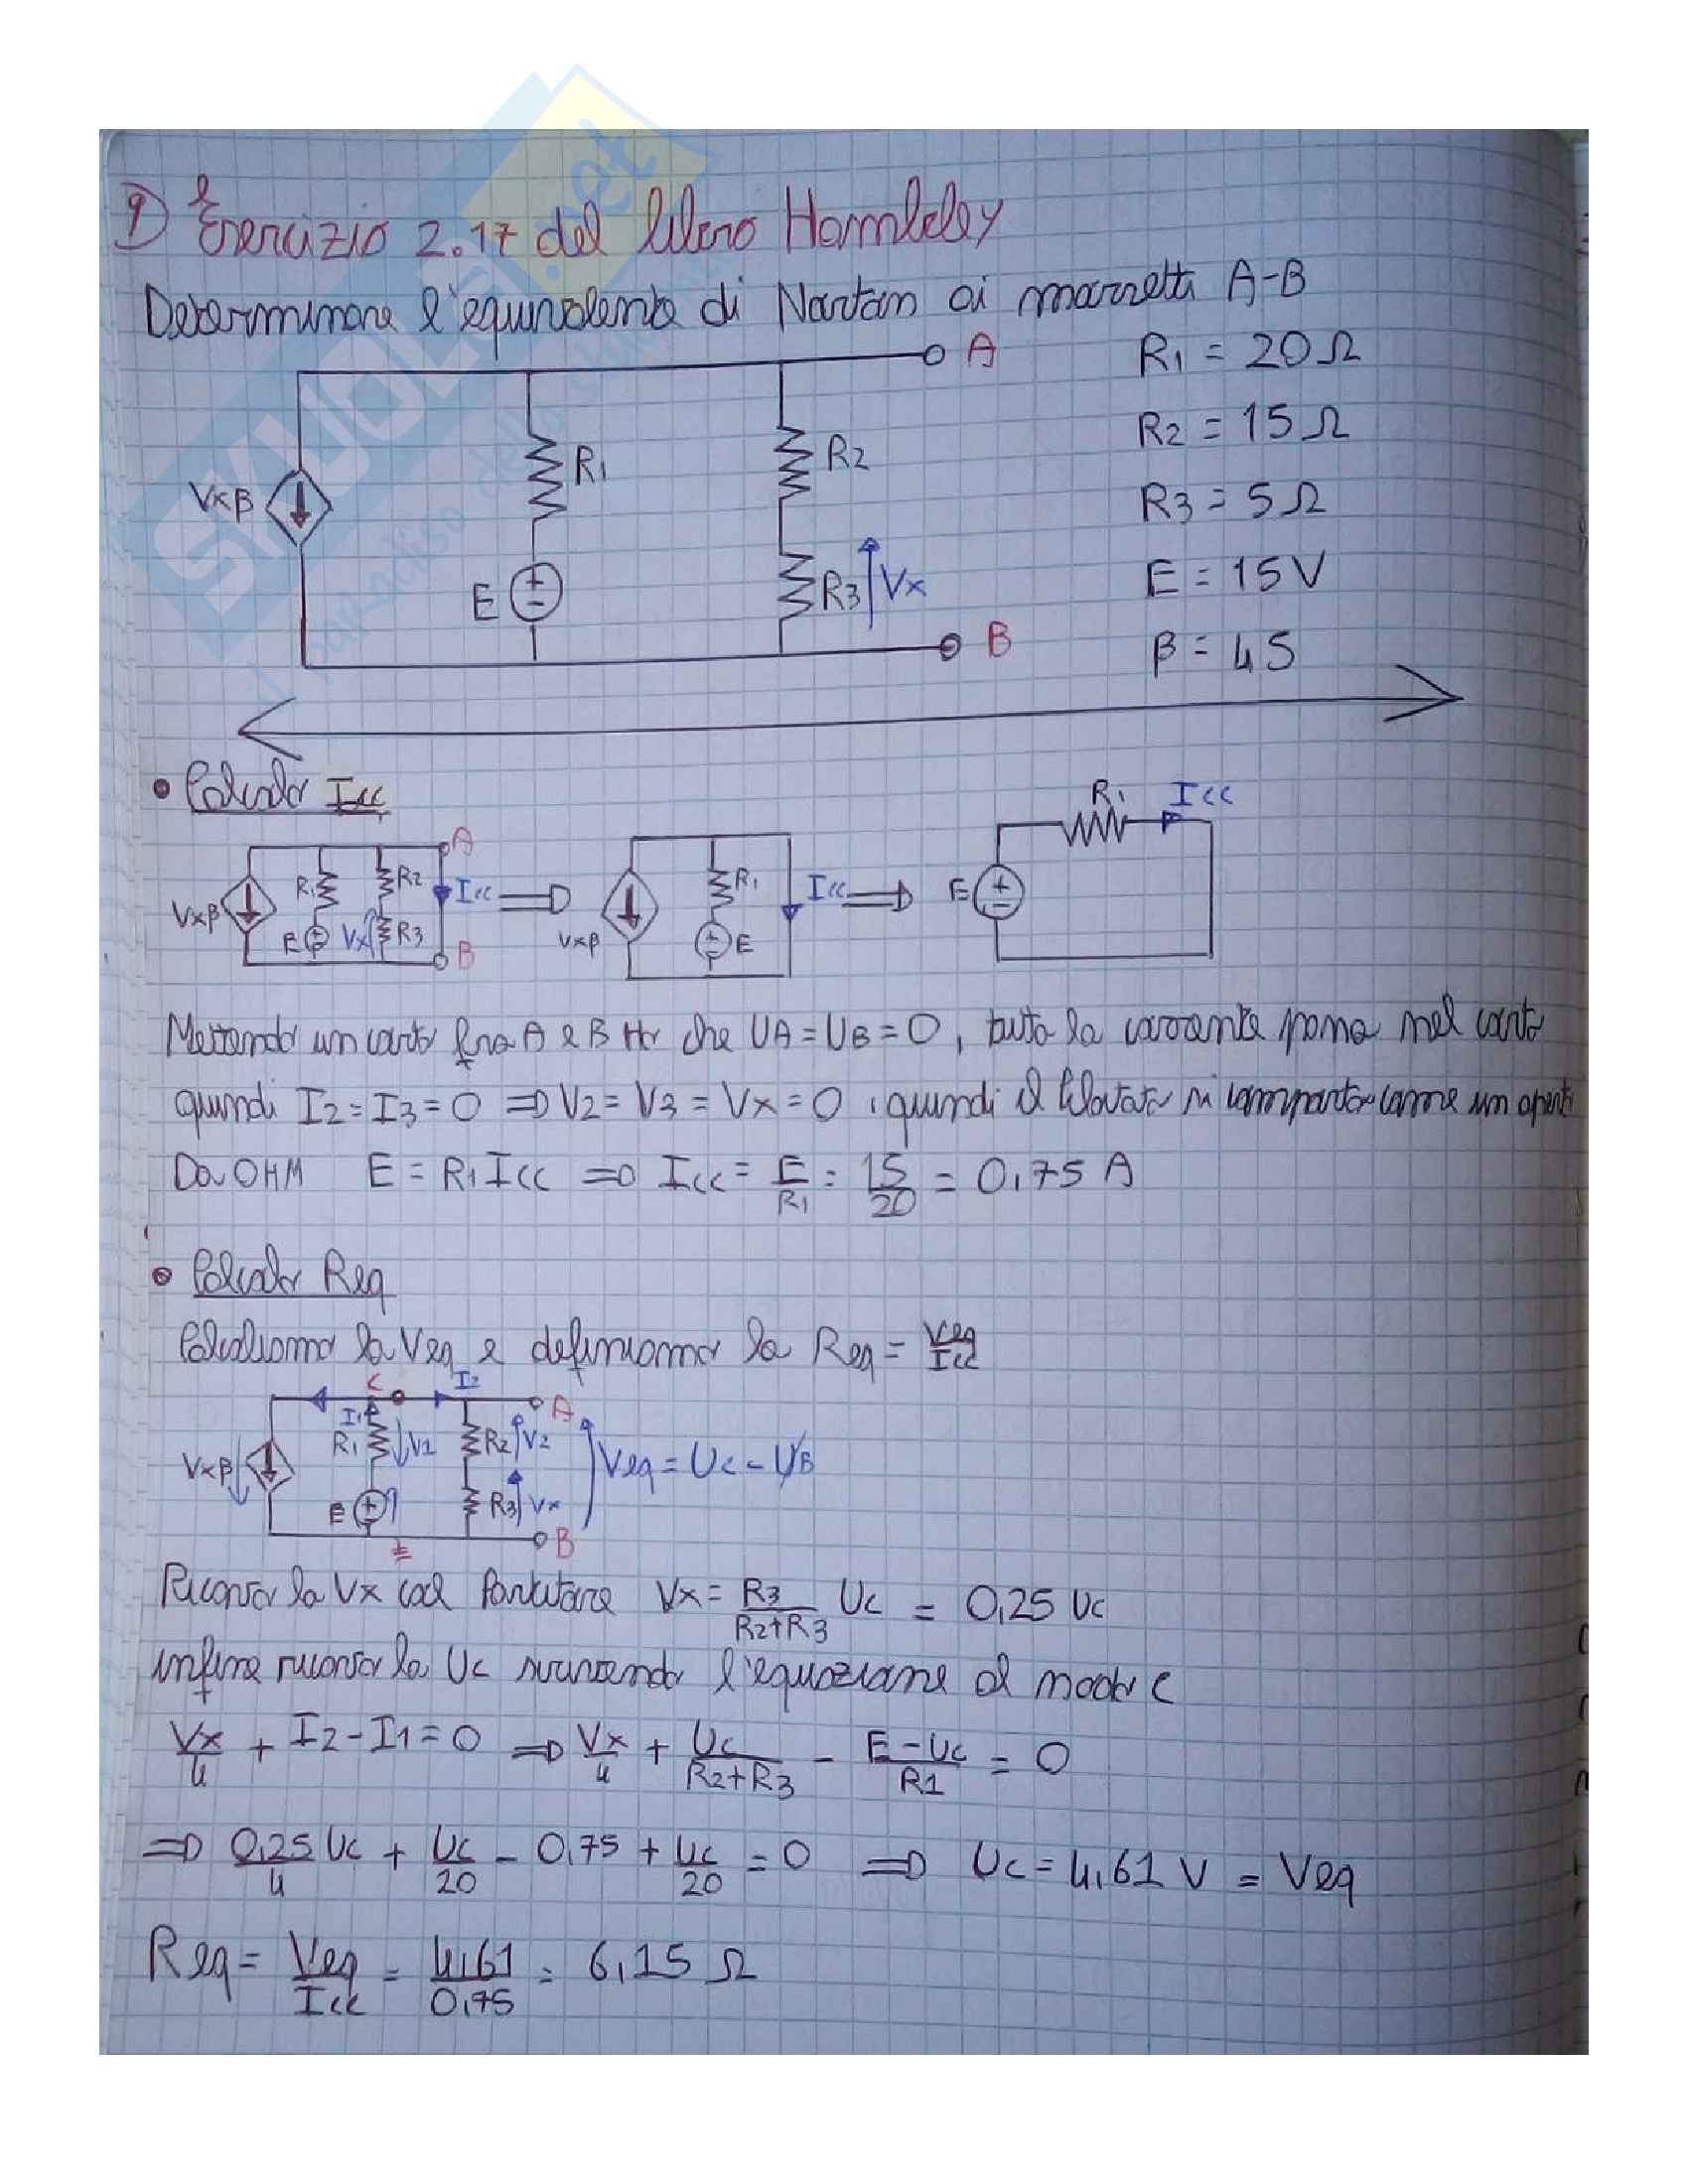 9) Esercizio 2.17 del libro Hambley
Determinare l'equivalente di Norton ai morsetti A-B
A
R1 = 20 Ω
R2 = 15 Ω
R3 = 5 Ω
E = 15 V
β = 4S
Vxβ
R1
R2
E
+
-
R3
Vx
B
• Calcolo Icc
Vxβ
R1
E
R2
Vx
R3
A
Icc
B
Vxβ
R1
E
Icc
E
R1
Icc
Mettendo un corto fra A e B Ho che UA = UB = 0, tutta la corrente passa nel corto
quindi I2 = I3 = 0 ⇒ V2 = V3 = Vx = 0, quindi il pilotato si comporta come un aperto
Da OHM E = R1 Icc ⇒ Icc = E/R1 = 15/20 = 0,75 A
• Calcolo Req
Calcoliamo la Veq e definiamo la Req = Veq/Icc
Vxβ
C
I1
I2
R1
V1
E
R2
V2
R3
Vx
A
B
Veq = Uc - UB
Ricavo la Vx col Partitore Vx = R3/(R2+R3) Uc = 0,25 Uc
infine ricavo la Uc scrivendo l'equazione al nodo C
Vx/4 + I2 - I1 = 0 ⇒ Vx/4 + Uc/(R2+R3) - (E - Uc)/R1 = 0
⇒ 0,25/4 Uc + Uc/20 - 0,75 + Uc/20 = 0 ⇒ Uc = 4,61 V = Veq
Req = Veq/Icc = 4,61/0,75 = 6,15 Ω
SKUOLA.net